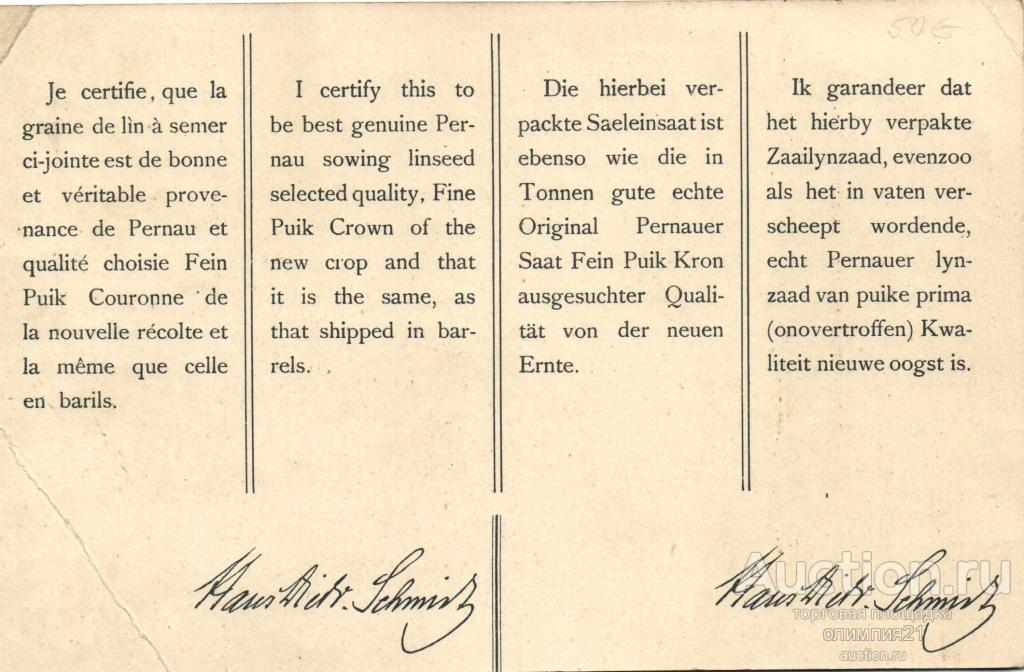 50 €
Je certifie, que la
graine de lin à semer
ci-jointe est de bonne
et véritable prove-
nance de Pernau et
qualité choisie Fein
Puik Couronne de
la nouvelle récolte et
la même que celle
en barils.
I certify this to
be best genuine Per-
nau sowing linseed
selected quality, Fine
Puik Crown of the
new crop and that
it is the same, as
that shipped in bar-
rels.
Die hierbei ver-
packte Saeleinsaat ist
ebenso wie die in
Tonnen gute echte
Original Pernauer
Saat Fein Puik Kron
ausgesuchter Quali-
tät von der neuen
Ernte.
Ik garandeer dat
het hierby verpakte
Zaailynzaad, evenzoo
als het in vaten ver-
scheept wordende,
echt Pernauer lyn-
zaad van puike prima
(onovertroffen) Kwa-
liteit nieuwe oogst is.
Hans Diedr. Schmidt
Hans Diedr. Schmidt
Auction.ru
торговая площадка
олимпия21
auction.ru